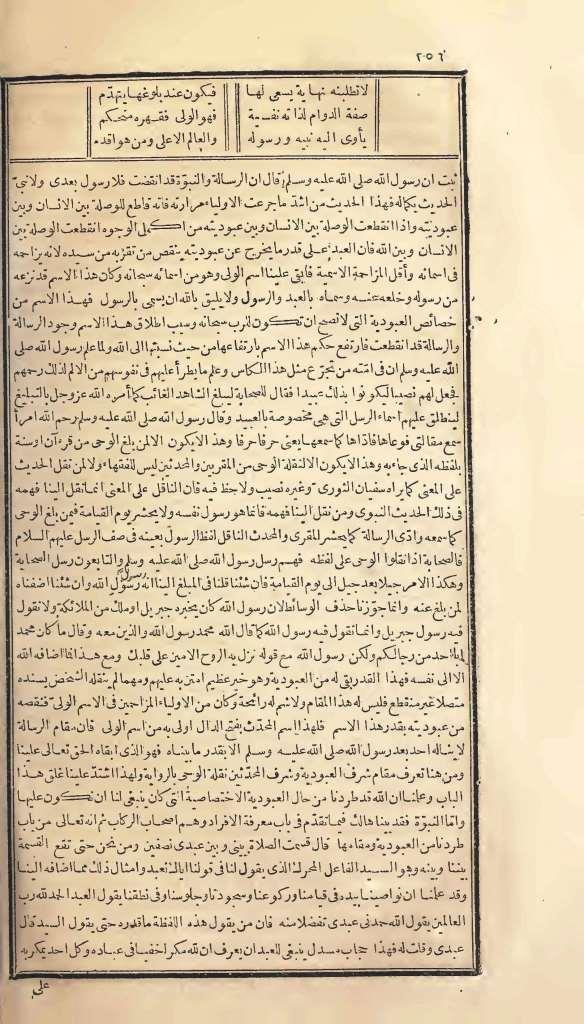 ٢٥٦
لا تطلبنه نهاية يسعى لها فيكون عند بلوغها يتهدم
صفة الدوام لذاته نفسية فهو الولي فقهره متحكم
يأوى اليه نبيه ورسوله والعالم الاعلى ومن هو اقدم
ثبت ان رسول الله صلى الله عليه وسلم قال ان الرسالة والنبوة قد انقضت فلا رسول بعدى ولا نبى
الحديث بكماله فهذا الحديث من اشد ما جرعت الاولياء مرارته فانه قاطع للوصلة بين الانسان وبين
عبوديته واذا انقطعت الوصلة بين الانسان وبين عبوديته من اكمل الوجوه انقطعت الوصلة بين
الانسان وبين الله فان العبد على قدر ما يخرج عن عبوديته ينقص من تقربه من سيده لانه يزاحمه
فى اسمائه وأقل المزاحمة الاسمية فابقى علينا اسم الولى وهو من اسمائه سبحانه وكان هذا الاسم قد نزعه
من رسوله وخلعه عنه وسماه بالعبد والرسول ولا يليق بالله ان يسمى بالرسول فهذا الاسم من
خصائص العبودية التى لا تصح ان تكون للرب سبحانه وسبب اطلاق هذا الاسم وجود الرسالة
والرسالة قد انقطعت فارتفع حكم هذا الاسم بارتفاعها من حيث نسبتها الى الله ولما علم رسول الله صلى
الله عليه وسلم ان فى امته من يجرع مثل هذا الكاس وعلم ما يطرأ عليهم فى نفوسهم من الالم لذلك رحمهم
فجعل لهم نصيبا ليكونوا بذلك عبيدا فقال للصحابة ليبلغ الشاهد الغائب كما أمره الله عز وجل بالتبليغ
لينطلق عليهم اسماء الرسل التى هى مخصوصة بالعبيد وقال رسول الله صلى الله عليه وسلم رحم الله امرأ
سمع مقالتى فوعاها فاداها كما سمعها يعنى حرفا حرفا وهذا لا يكون الا لمن بلغ الوحى من قرءآن او سنة
بلفظه الذى جاء به وهذا لا يكون الا لنقلة الوحى من المقربين والمحدثين ليس للفقهاء ولا لمن نقل الحديث
على المعنى كما يراه سفيان الثورى وغيره نصيب ولا حظ فيه فان الناقل على المعنى انما نقل الينا فهمه
فى ذلك الحديث النبوى ومن نقل الينا فهمه فانما هو رسول نفسه ولا يحشر يوم القيامة فيمن بلغ الوحى
كما سمعه وادى الرسالة كما يحشر المقرى والمحدث الناقل لفظ الرسول بعينه فى صف الرسل عليهم السلام
فالصحابة اذا نقلوا الوحى على لفظه فهم رسل رسول الله صلى الله عليه وسلم والتابعون رسل الصحابة
وهكذا الامر جيلا بعد جيل الى يوم القيامة فان شئنا قلنا فى المبلغ الينا انه رسول رسول الله وان شئنا اضفناه
لمن بلغ عنه وانما جوزنا حذف الوسائط لان رسول الله كان يخبره جبريل او ملك من الملائكة ولا نقول
فيه رسول جبريل وانما نقول فيه رسول الله كما قال الله محمد رسول الله والذين معه وقال ما كان محمد
ابا احد من رجالكم ولكن رسول الله مع قوله نزل به الروح الامين على قلبك ومع هذا فما اضافه الله
الا الى نفسه فهذا القدر بقى له من العبودية وهو خير عظيم امتن به عليهم ومهما لم ينقله الشخص بسنده
متصلا غير منقطع فليس له هذا المقام ولا شم له رائحة وكان من الاولياء المزاحمين فى الاسم الولى فنقصه
من عبوديته بقدر هذا الاسم فلهذا اسم المحدث بفتح الدال اولى به من اسم الولى فان مقام الرسالة
لا يناله احد بعد رسول الله صلى الله عليه وسلم الا بقدر ما بيناه فهو الذى ابقاه الحق تعالى علينا
ومن هنا تعرف مقام شرف العبودية وشرف المحدثين نقلة الوحى بالرواية ولهذا اشتد علينا غلق هذا
الباب وعلمنا ان الله قد طردنا من حال العبودية الاختصاصية التى كان ينبغى لنا ان نكون عليها
واما النبوة فقد بيناها لك فيما تقدم فى باب معرفة الافراد وهم اصحاب الركاب ثم انه تعالى من باب
طردنا من العبودية ومقامها قال قسمت الصلاة بينى وبين عبدى نصفين ومن نحن حتى تقع القسمة
بيننا وبينه وهو السيد الفاعل المحرك الذى يقول لنا فى قولنا اياك نعبد وامثال ذلك مما اضافه الينا
وقد علمنا ان نواصينا بيده فى قيامنا وركوعنا وسجودنا وجلوسنا وفى نطقنا يقول العبد الحمد لله رب
العالمين يقول الله حمدنى عبدى تفضلا منه فان من يقول هذه اللفظة ما قدره حتى يقول السيد قال
عبدى وقلت له فهذا حجاب مسدل ينبغى للعبد ان يعرف ان لله مكرا خفيا فى عباده وكل احد يمكر به
على